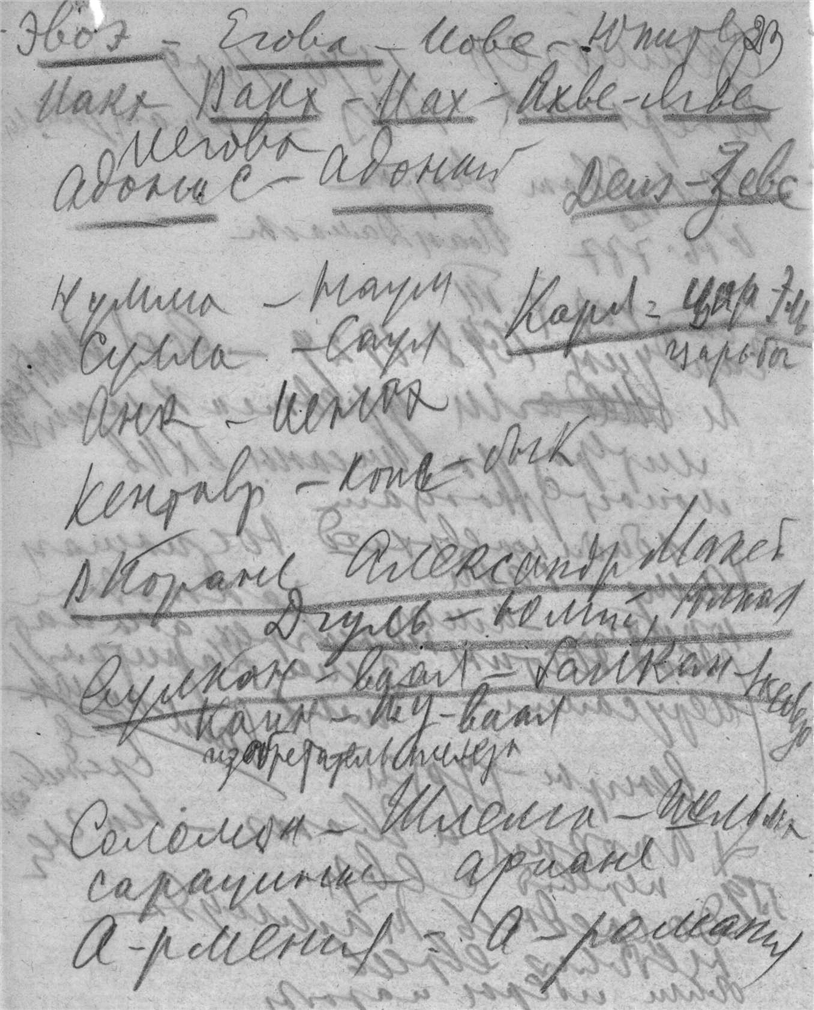 Эвоэ - Егова - Иове - Юпитер 23
Иакх Вакх - Иах - Яхве - Ягве
Иегова
Адонис - Адонай Деиз - Зевс
Нумма - Наум
Карл = царь Эль
Сулла - Саул царь бог
Анк - Иенох
Кентавр - конь - бык
В Коране Александр Макед
Дгуль - Юлий,
Вулкан - Ваал - Балкан -
Каин - Ву - ваал
изобретатель железа
Соломон - Шлема - Шельма
сарацины ариане
А-рмения = А - романия